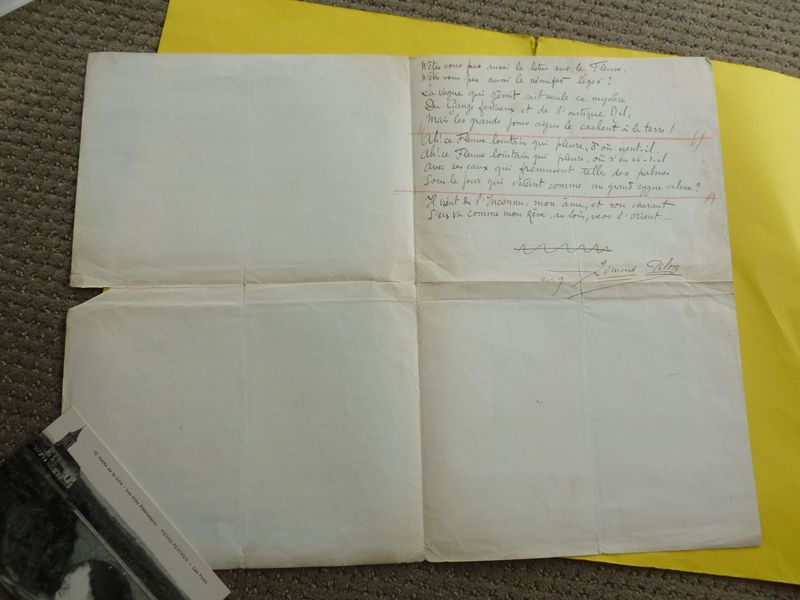 N'êtes vous pas aussi le lotus sur le Fleuve,
N'êtes vous pas aussi le nénufar léger ?
La vague qui gémit sait seule ce mystère
Du Gange fastueux et de l'antique Nil,
Mais les grands joncs aigus le cachent à la terre !
Ah ! ce Fleuve lointain qui pleure, d'où vient-il
Ah ! ce Fleuve lointain qui pleure, où s'en va-t-il
avec ses eaux qui frémissent telles des palmes
Sous le jour qui s'éteint comme un grand cygne calme ?
Il vient de l'Inconnu, mon âme, et son courant
S'en va comme mon Rêve, au loin, vers l'orient...
Edmond Pilon
12. Vallée de la Cure - Les Sites Pittoresques PIERRE-PERTHUIS - Les Ponts